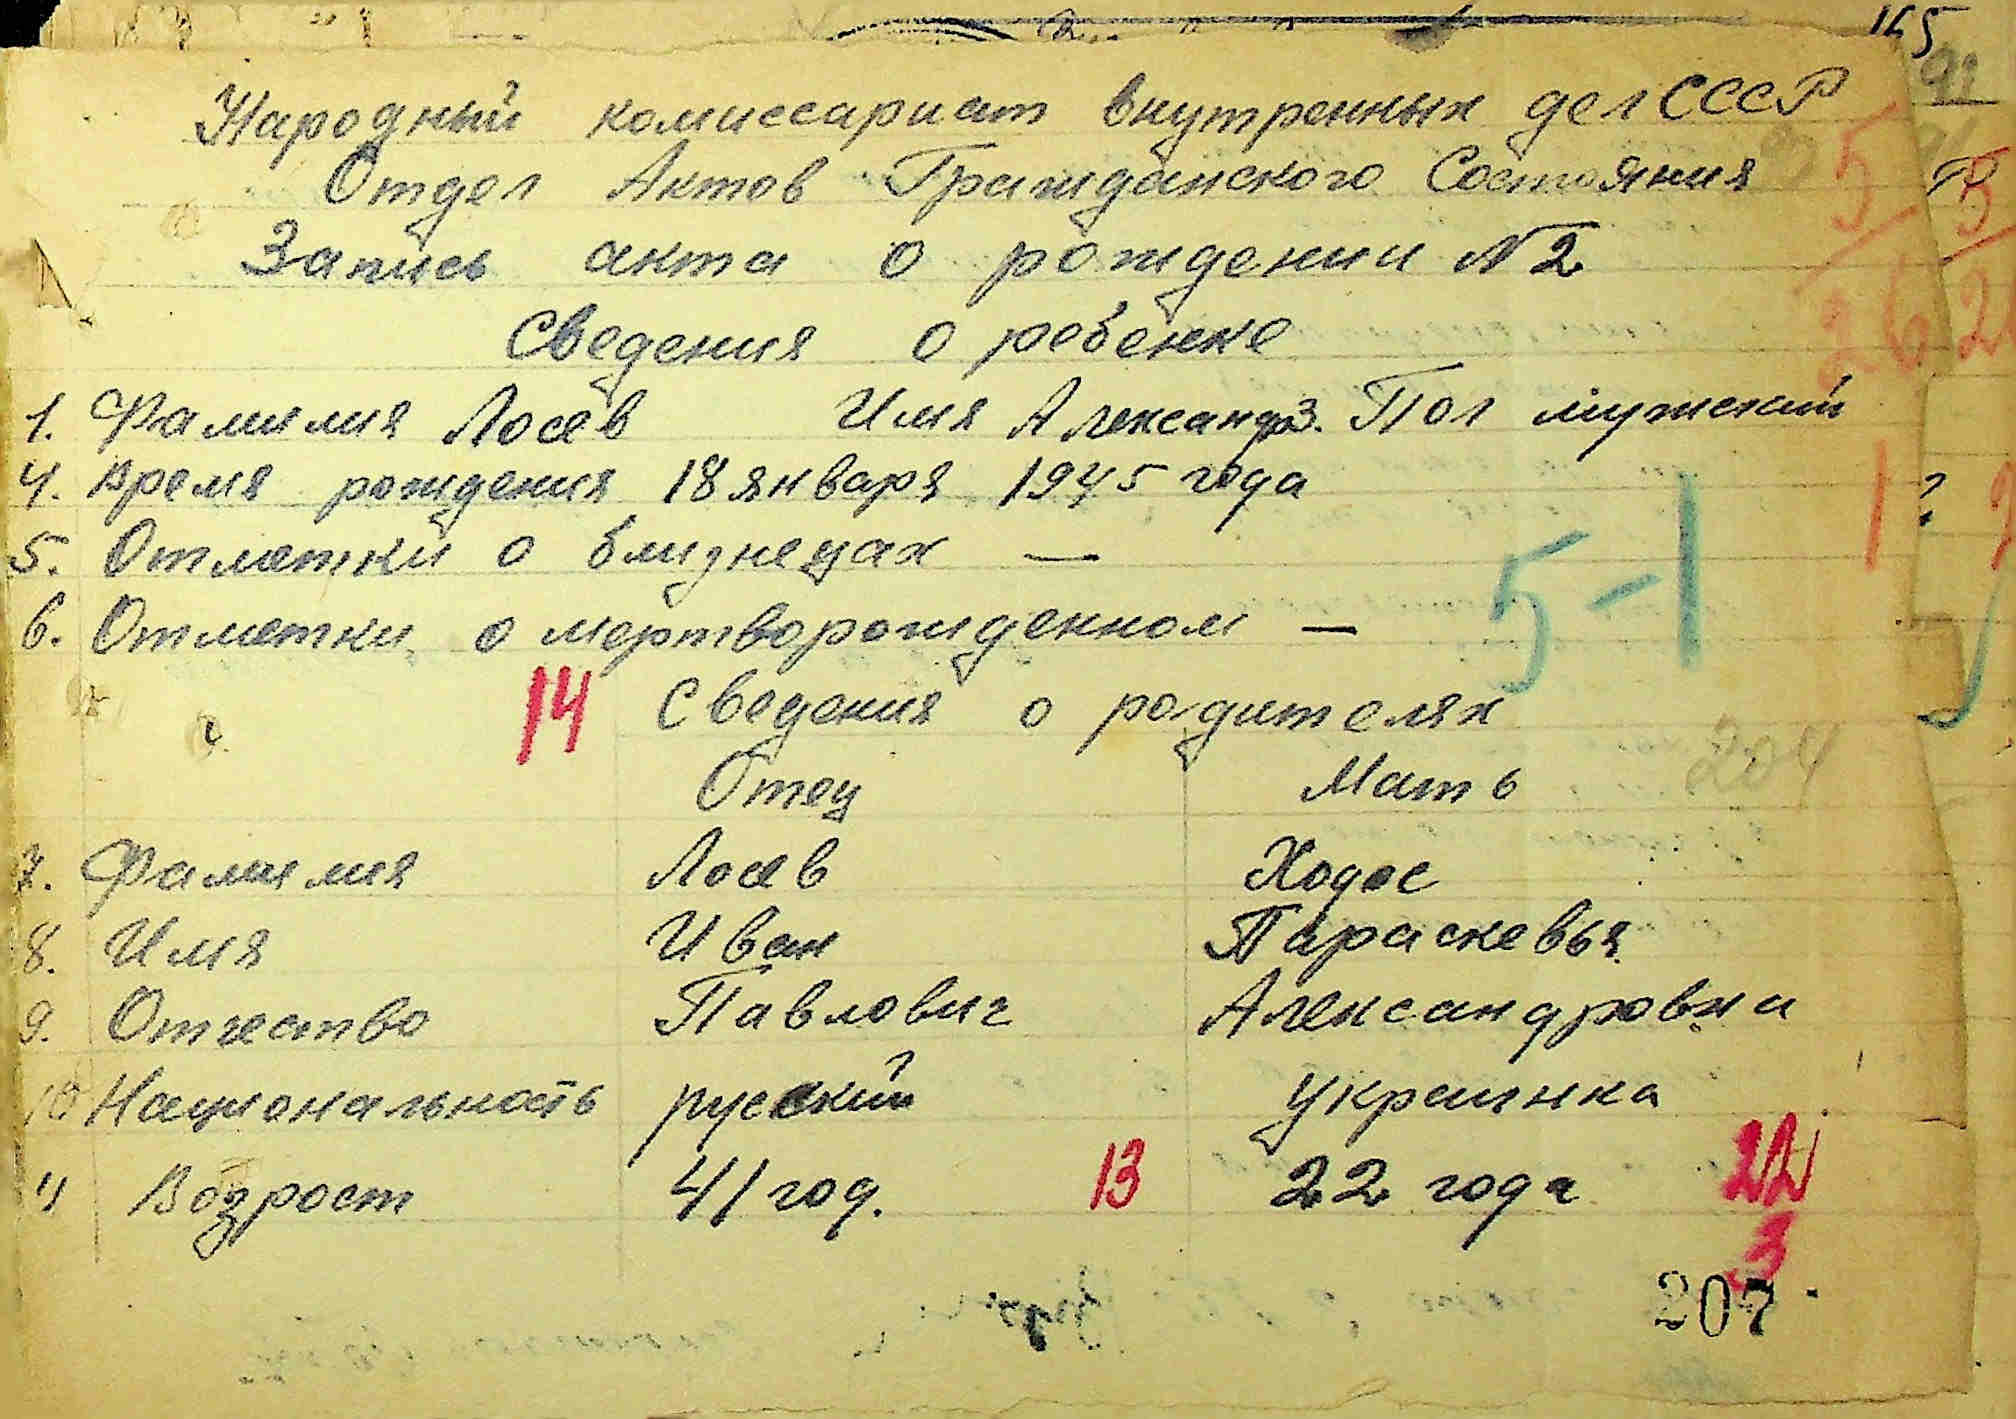 165
Народный комиссариат внутренных дел СССР
Отдел Актов Гражданского Состояния
Запись акта о рождении N 2
Сведения о ребенке
1. Фамилия Лосев Имя Александр 3. Пол мужский
4. Время рождения 18 января 1945 года
5. Отметки о близнецах —
6. Отметки о мертворожденном —
5-1
14 Сведения о родителях
Отец Мать 204
7. Фамилия Лосев Ходос
8. Имя Иван Параскевья
9. Отчество Павлович Александровна
10 Национальность русский украинка
11 Возраст 41 год. 13 22 года 22
3
207